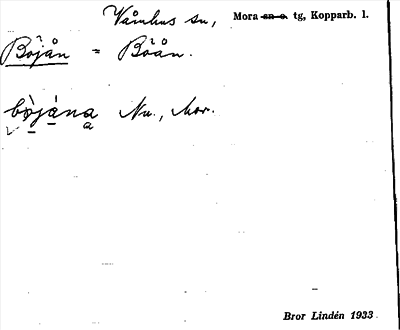 Våmhus sn, Mora s̶n̶ ̶o̶. tg, Kopparb. l.
Böjån = Böån.
bòjána Nu., Mor.
Bror Lindén 1933.